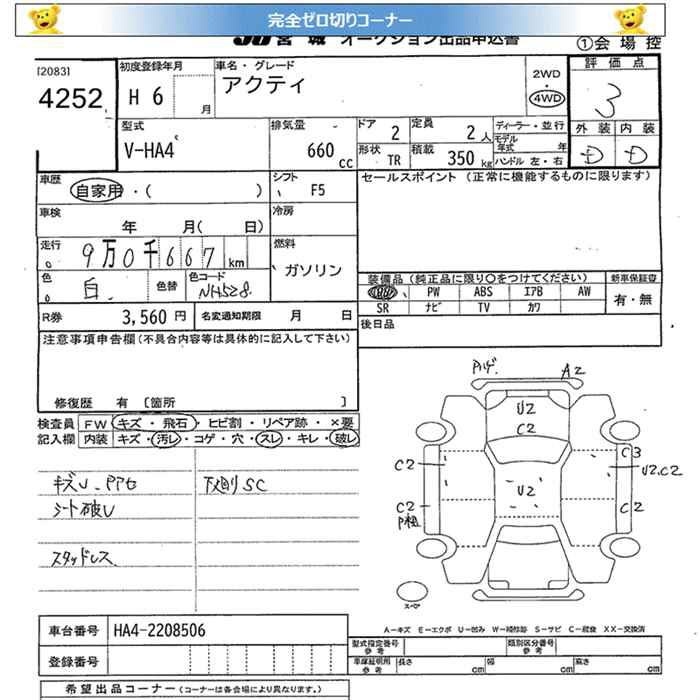 完全ゼロ切りコーナー
JU 宮城 オークション出品申込書 ①会場控
[2083]
4252
初度登録年月
H 6 月
車名・グレード
アクティ
2WD
4WD
評価点
3
型式
V-HA4
排気量
660 cc
ドア 2
定員 2 人
ディーラー・並行
モデル年式 年
ハンドル 左・右
形状 TR
積載 350 kg
外装 内装
D D
車歴
自家用・( )
シフト
F5
セールスポイント (正常に機能するものに限ります)
車検
年 月( 日)
冷房
走行
9万0千667 km
燃料
ガソリン
色
白
色替
色コード
NH528
装備品 (純正品に限り〇をつけてください)
PW ABS エアB AW
SR ナビ TV カワ
新車保証書
有・無
R券 3,560 円
名変通知期限 月 日
後日品
注意事項申告欄(不具合内容等は具体的に記入して下さい)
修復歴 有 [箇所 ]
検査員記入欄
FW キズ・飛石・ヒビ割・リペア跡・×要
内装 キズ・汚レ・コゲ・穴・スレ・キレ・破レ
シート破レ
下廻りSC
スタッドレス
A2
U2
C2
C2
C3
U2.C2
U2
C2
C2
A-キズ E-エクボ U-凹み W-補修跡 S-サビ C-腐食 XX-交換済
車台番号 HA4-2208506
登録番号
型式指定番号 参考
類別区分番号 参考
車庫証明用 参考
長さ cm
幅 cm
高さ cm
希望出品コーナー (コーナーは各会場により異なります。)